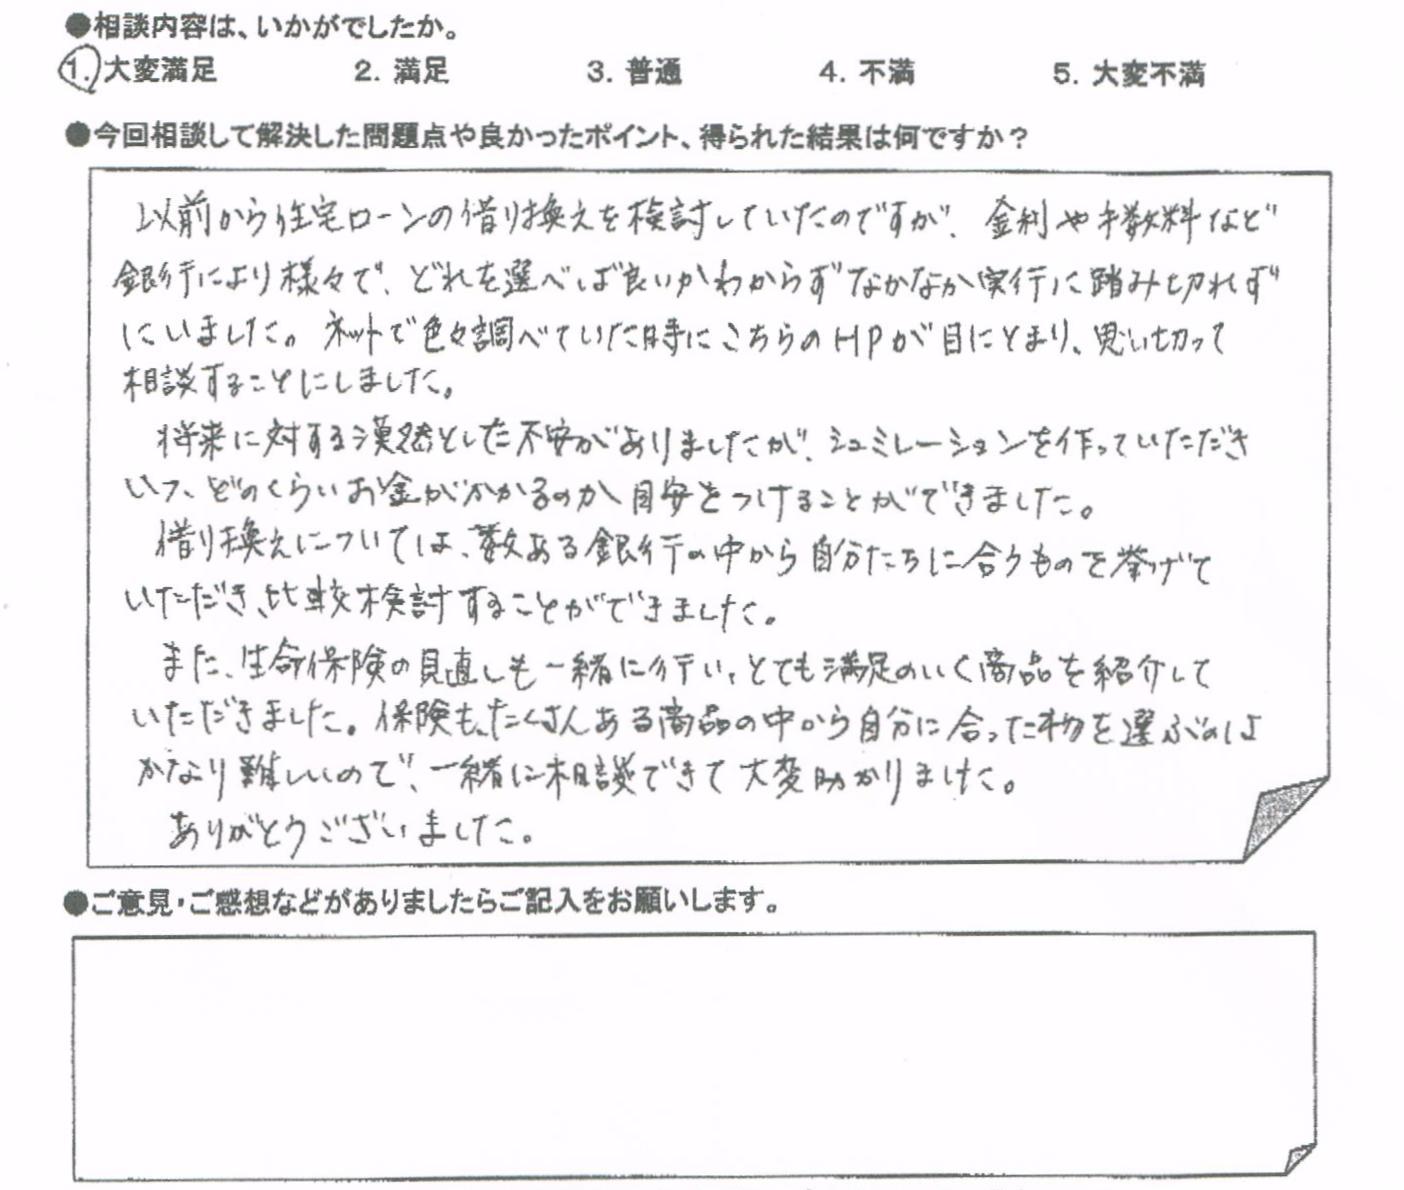 ●相談内容は、いかがでしたか。
1. 大変満足 2. 満足 3. 普通 4. 不満 5. 大変不満
●今回相談して解決した問題点や良かったポイント、得られた結果は何ですか？
以前から住宅ローンの借り換えを検討していたのですが、金利や手数料など
銀行により様々で、どれを選べば良いかわからずなかなか実行に踏み切れず
にいました。ネットで色々調べていた時にこちらのHPが目にとまり、思い切って
相談することにしました。
将来に対する漠然とした不安がありましたが、シュミレーションを作っていただき
いつ、どのくらいお金がかかるのか目安をつけることができました。
借り換えについては、数ある銀行の中から自分たちに合うものを挙げて
いただき、比較検討することができました。
また、生命保険の見直しも一緒に行い、とても満足のいく商品を紹介して
いただきました。保険も、たくさんある商品の中から自分に合った物を選ぶのは
かなり難しいので、一緒に相談できて大変助かりました。
ありがとうございました。
●ご意見・ご感想などがありましたらご記入をお願いします。